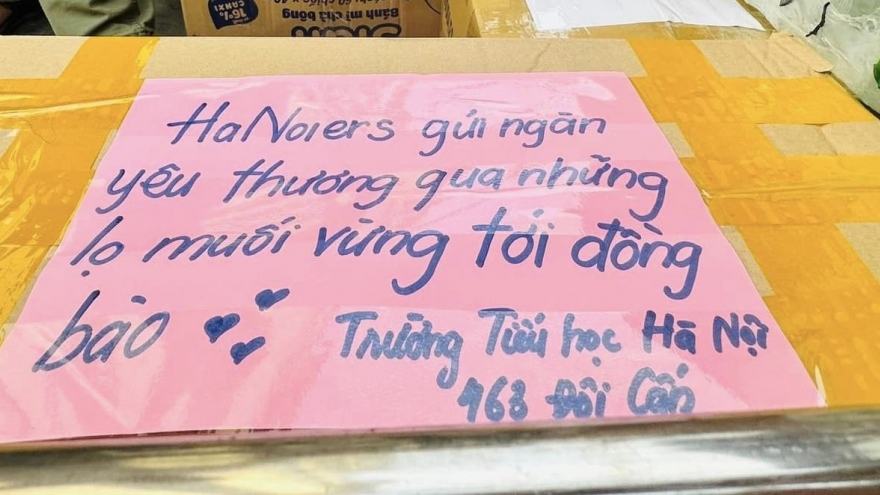 16%
CANXI
Bánh mì chà bông
HaNoiers gửi ngàn
yêu thương qua những
lọ muối vừng tới đồng
bào
Trường Tiểu học Hà Nội
463 Đội Cấn